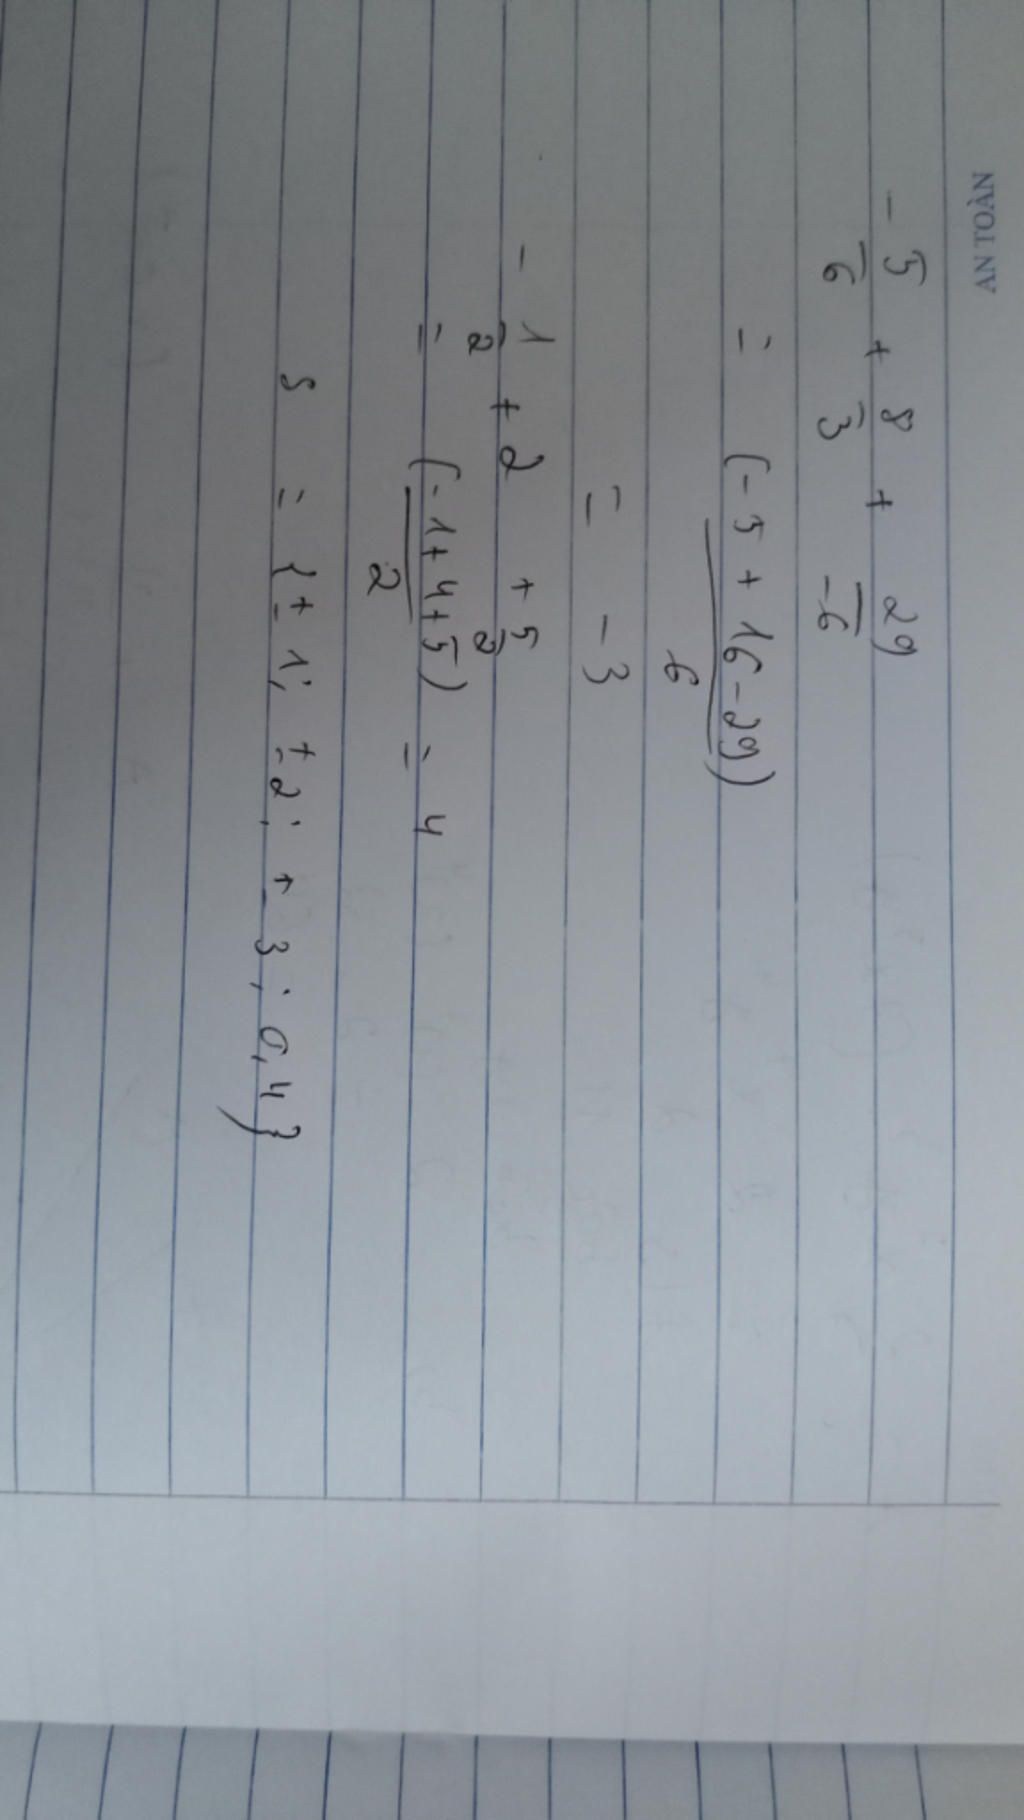 AN TOÀN
- 5/6 + 8/3 + 29/-6
= (-5 + 16 - 29)/6
= - 3
- 1/2 + 2 + 5/2
= (-1 + 4 + 5)/2 = 4
S = {± 1; ± 2; + 3; 0, 4}